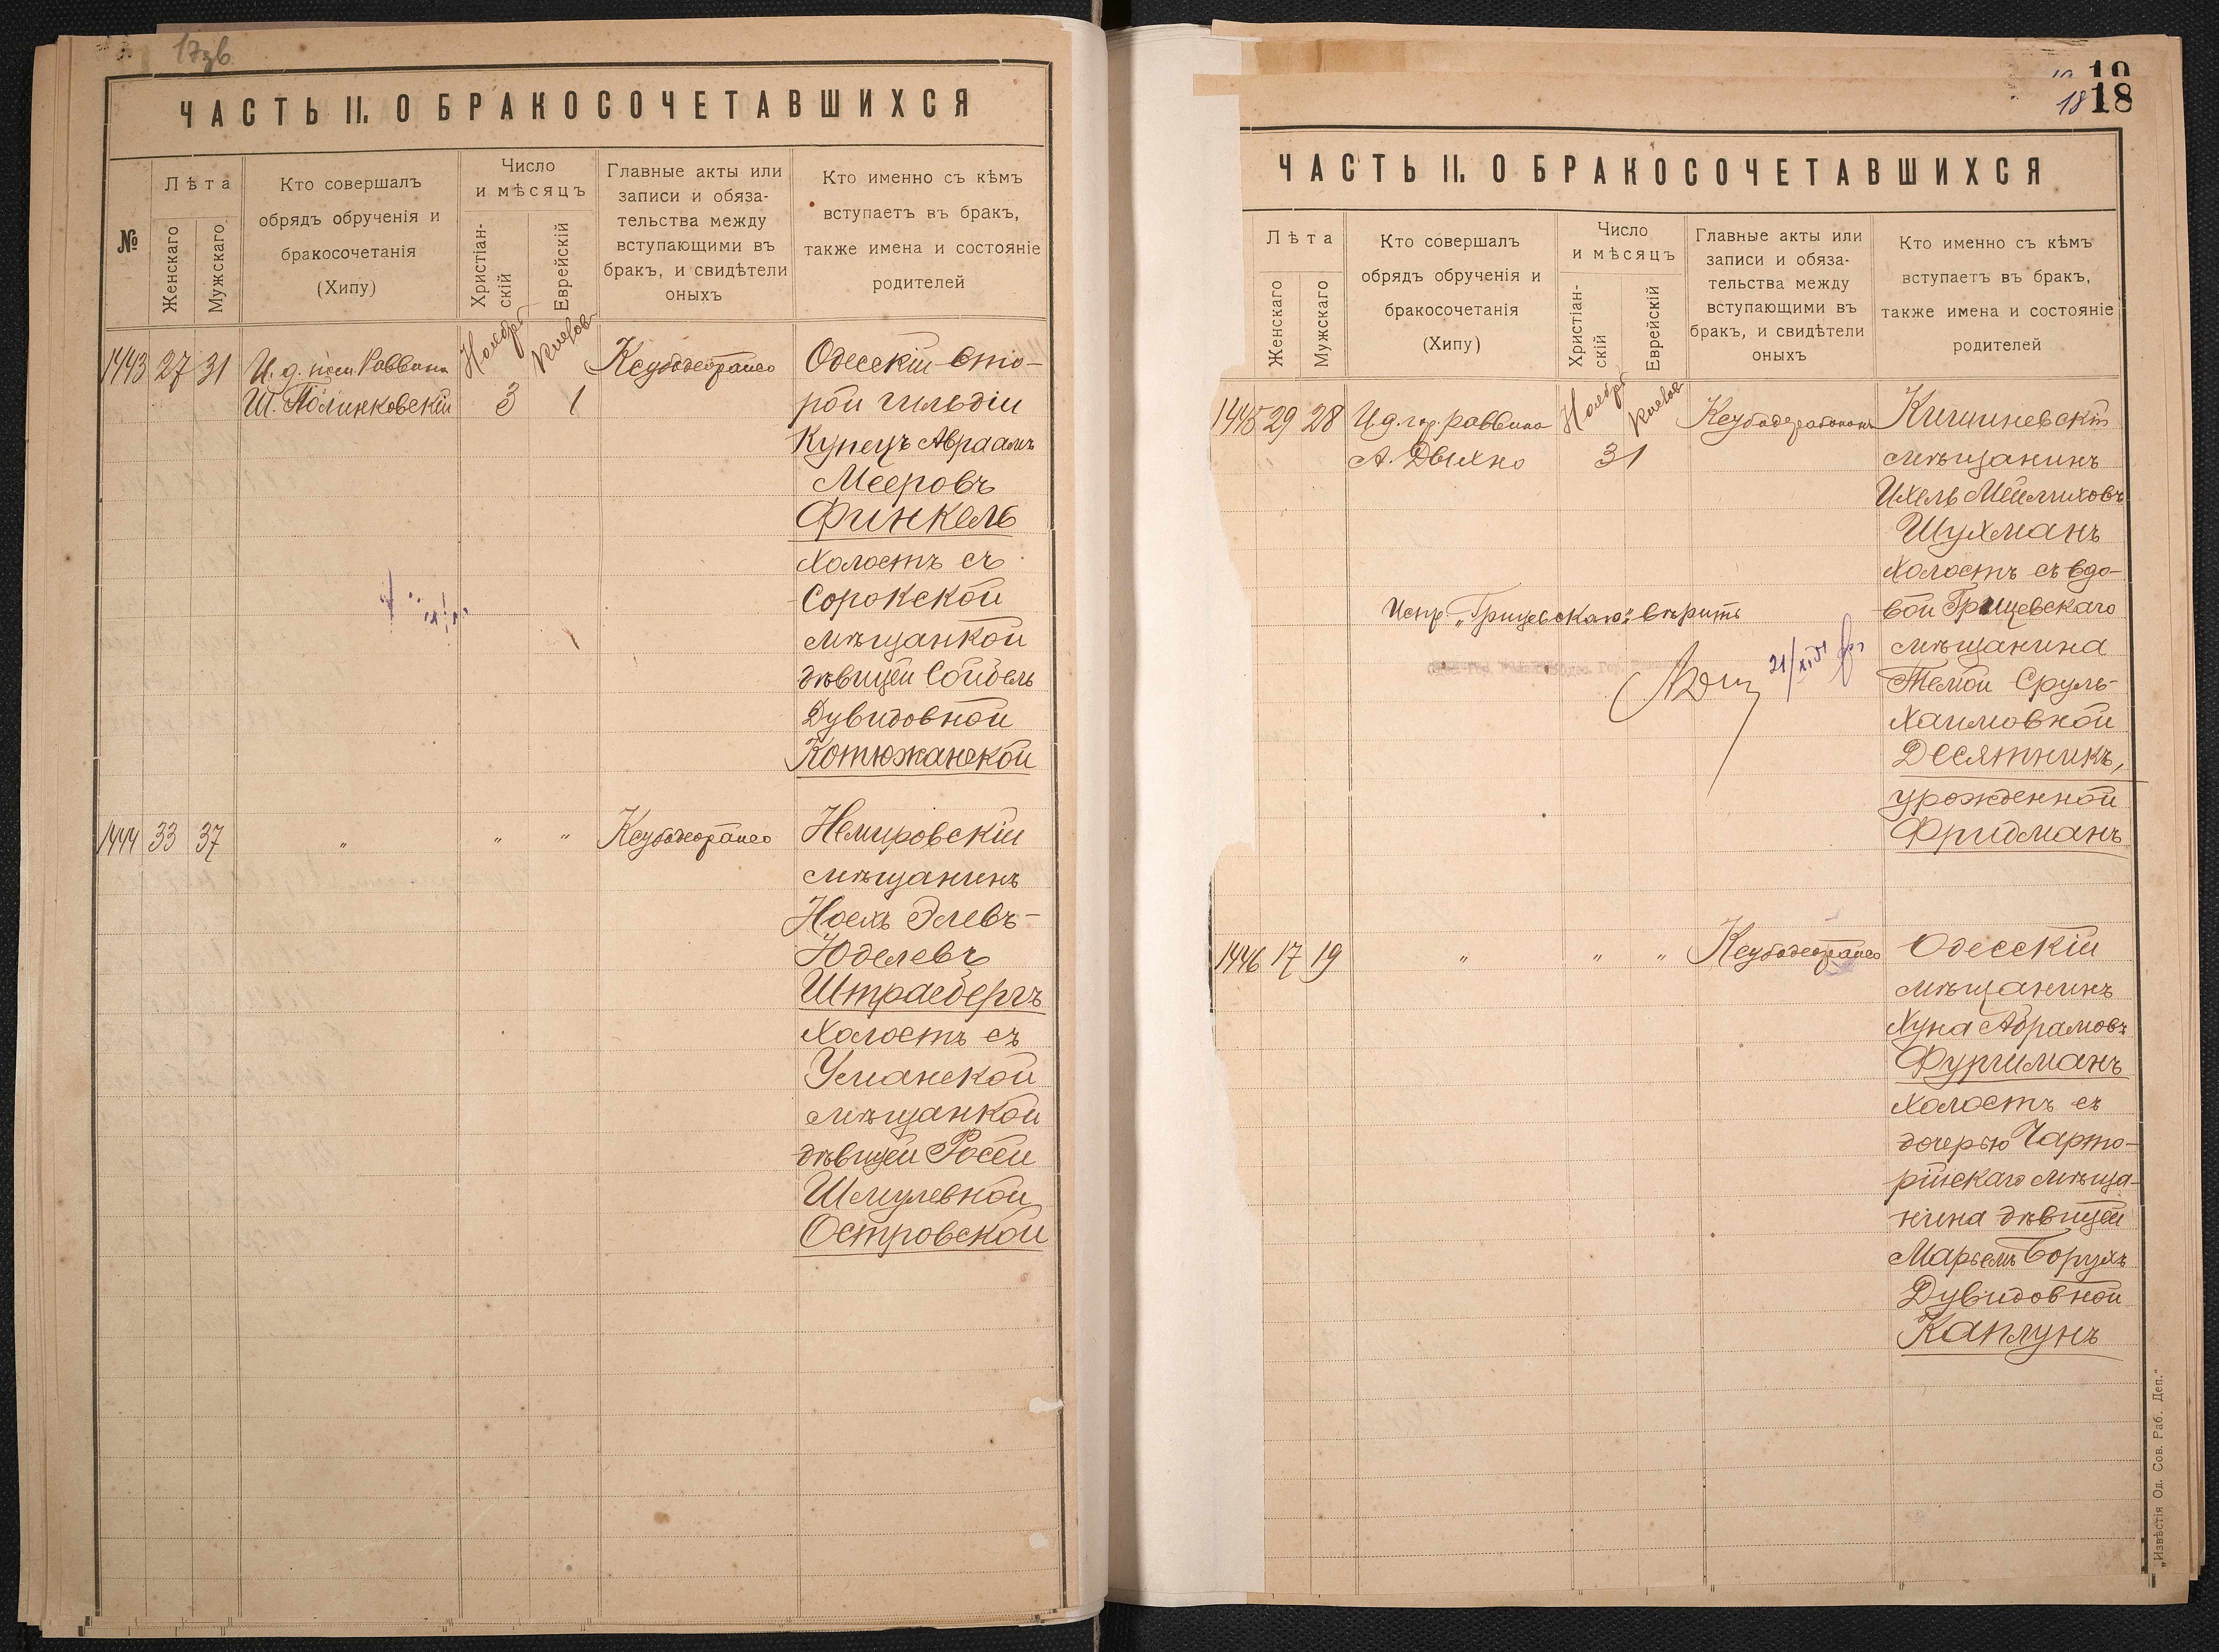 17зв
ЧАСТЬ II. О БРАКОСОЧЕТАВШИХСЯ
№
Лѣта
Женскаго
Мужскаго
Кто совершалъ
обрядъ обрученія и
бракосочетанія
(Хипу)
Число
и мѣсяцъ
Христіан-
скій
Еврейскій
Главные акты или
записи и обяза-
тельства между
вступающими въ
бракъ, и свидѣтели
оныхъ
Кто именно съ кѣмъ
вступаетъ въ бракъ,
также имена и состояніе
родителей
1443 27 31 И. д. пом. Раввина Ноября Кислев Одесскій вто-
Ш. Полинковскій 3 1 рой гильдіи
Купецъ Авраамъ
Мееровъ
Финкель
холостъ съ
Сорокской
мѣщанкой
дѣвицей Сойбель
Дувидовной
Котюжанской
1444 33 37 " " " Немировскій
мѣщанинъ
Иось Элевъ-
Юделевъ
Штрасбергъ
холостъ съ
Уманской
мѣщанкой
дѣвицей Росей
Шмулевной
Островской
19
18 18
ЧАСТЬ II. О БРАКОСОЧЕТАВШИХСЯ
Лѣта
Женскаго
Мужскаго
Кто совершалъ
обрядъ обрученія и
бракосочетанія
(Хипу)
Число
и мѣсяцъ
Христіан-
скій
Еврейскій
Главные акты или
записи и обяза-
тельства между
вступающими въ
бракъ, и свидѣтели
оныхъ
Кто именно съ кѣмъ
вступаетъ въ бракъ,
также имена и состояніе
родителей
1445 29 28 И. д. гор. раввина Ноября Кислев Кишиневскій
А. Двихно 3 1 мѣщанинъ
Ихель Мейлиховъ
Шухманъ
холостъ съ вдо-
вой Грицевскаго
Испр. „Грицевскаго" вѣрить
мѣщанина
Темой Сруль-
Хаимовной
Десятникъ,
урожденной
Фридманъ
1446 17 19 " " " Одесскій
мѣщанинъ
Хуна Абрамовъ
Фургиманъ
холостъ съ
дочерью Чарто-
рійскаго мѣща-
нина дѣвицей
Марьемъ Борухъ
Дувидовной
Каплунъ
„Извѣстія Од. Сов. Раб. Деп."